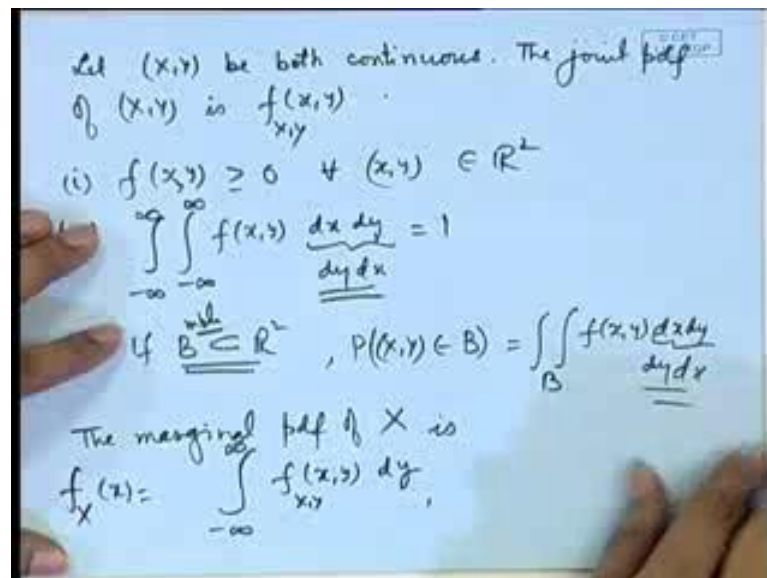 Let (X,Y) be both continuous. The joint pdf
of (X,Y) is f_{X,Y}(x,y) .
(i) f(x,y) ≥ 0 ∀ (x,y) ∈ ℝ²
∫_{-∞}^{∞} ∫_{-∞}^{∞} f(x,y) dx dy = 1
dy dx
If B ⊂ ℝ² , P((X,Y) ∈ B) = ∫∫_B f(x,y) dx dy
dy dx
The marginal pdf of X is
f_X(x) = ∫_{-∞}^{∞} f_{X,Y}(x,y) dy ,